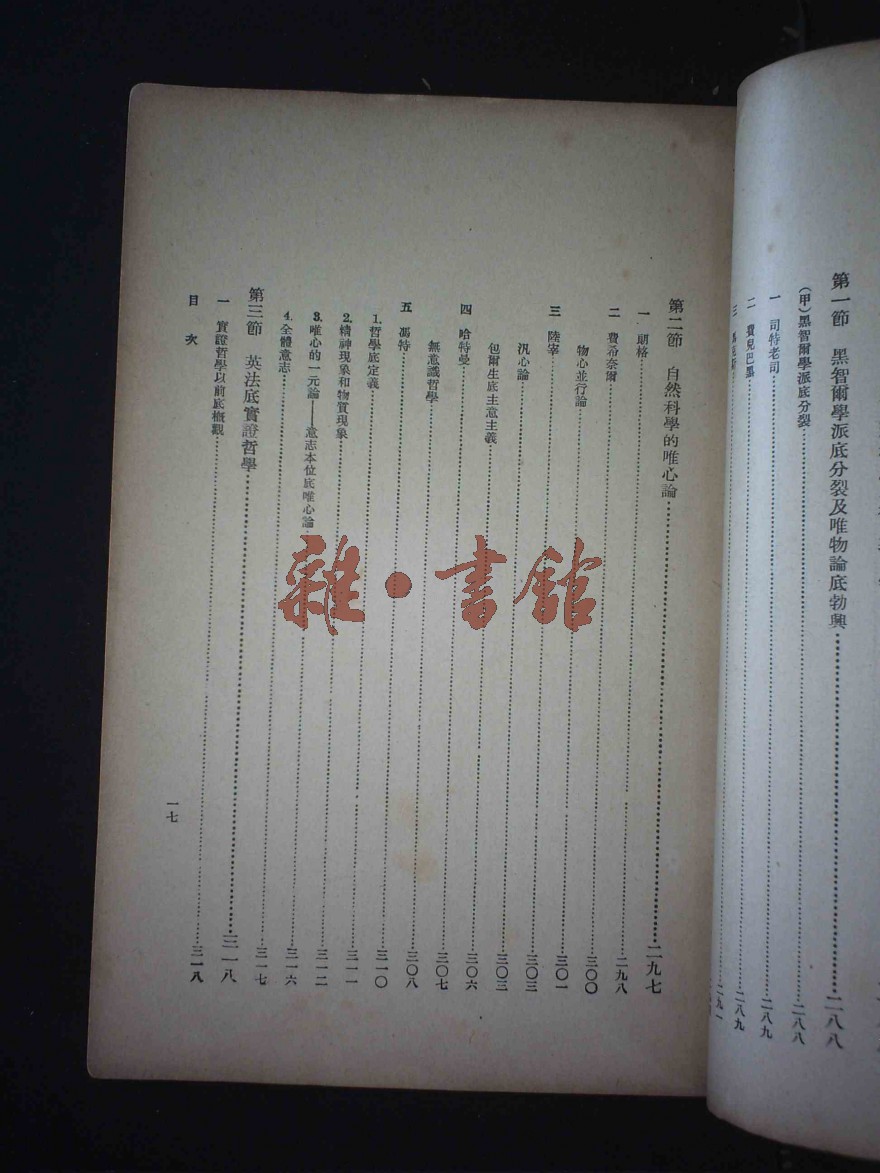 第一節　黑智爾學派底分裂及唯物論底勃興…………二八八
（甲）黑智爾學派底分裂…………二八八
一　司特老司…………二八九
二　費兒巴黑…………二八九
三
第二節　自然科學的唯心論…………二九七
一　朗格…………二九八
二　費希奈爾…………三〇〇
物心並行論…………三〇一
三　陸宰…………三〇三
汎心論…………三〇三
包爾生底主意主義…………三〇六
四　哈特曼…………三〇七
無意識哲學…………三〇八
五　馮特…………三一〇
1. 哲學底定義…………三一一
2. 精神現象和物質現象…………三一二
3. 唯心的一元論——意志本位底唯心論…………三一六
4. 全體意志…………三一七
第三節　英法底實證哲學…………三一八
一　實證哲學以前底概觀…………三一八
目次
一七
雜·書館